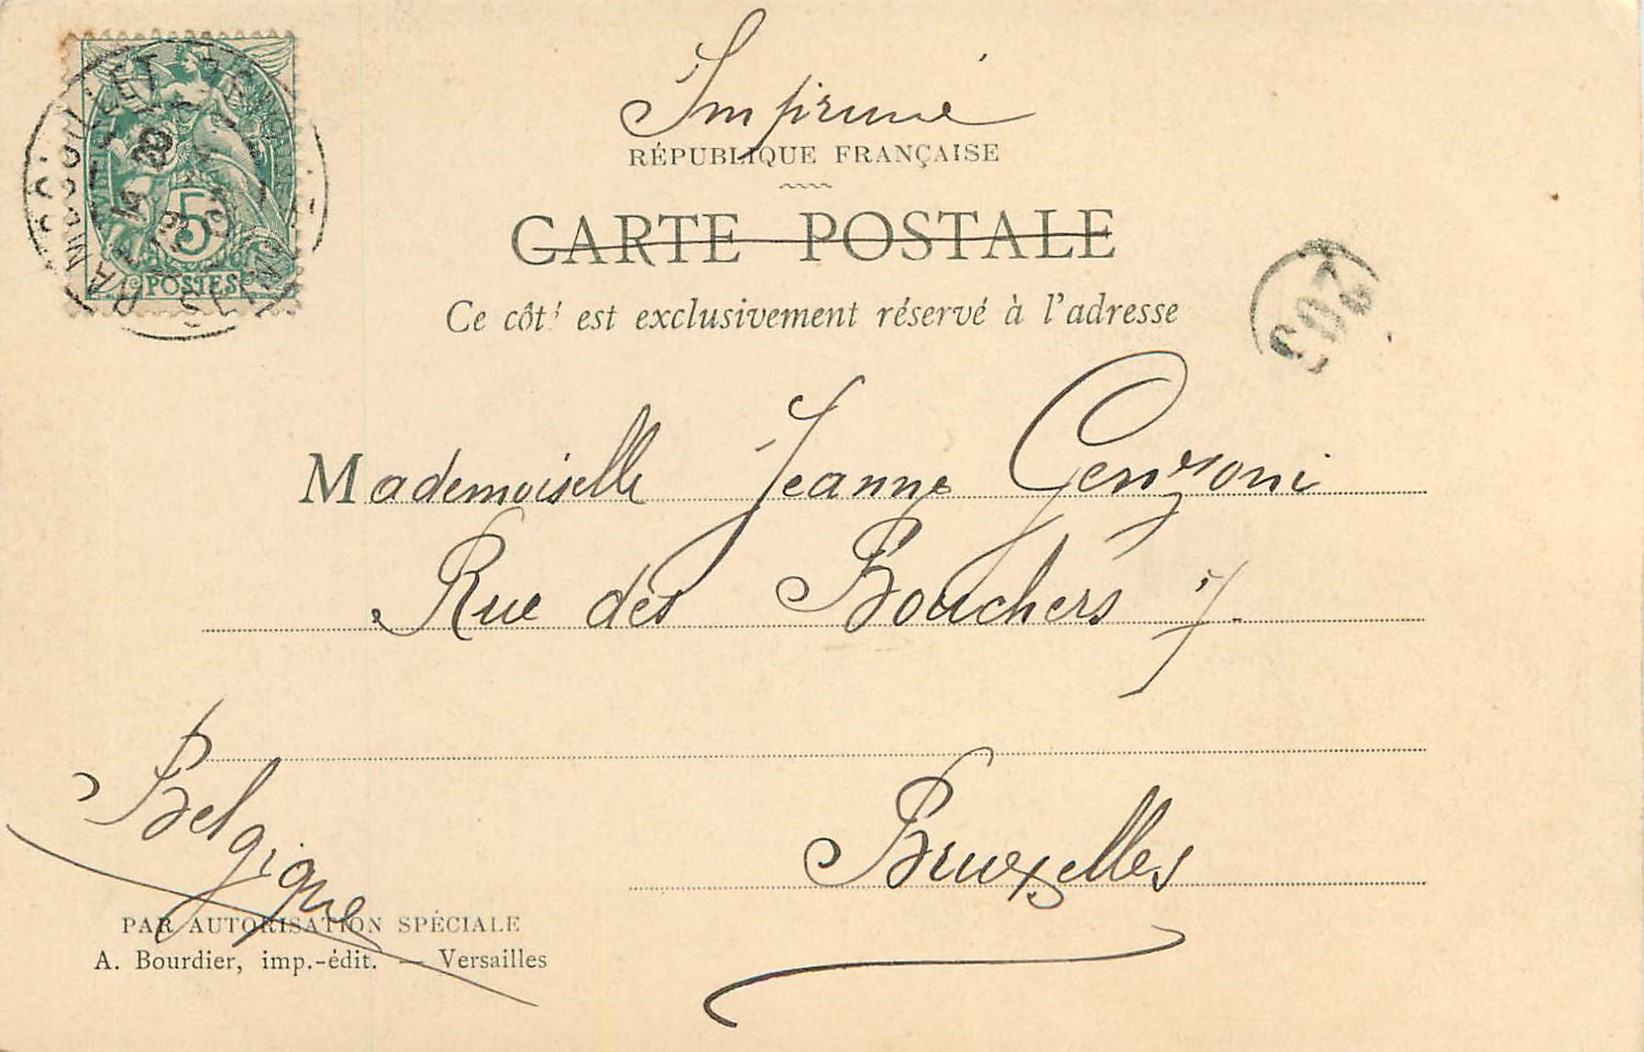 Imprimé
RÉPUBLIQUE FRANÇAISE
CARTE POSTALE
Ce côté est exclusivement réservé à l'adresse
RAMBOUILLET
5
POSTES
Mademoiselle Jeanne Genzoni
Rue des Bouchers 7.
Belgique
Bruxelles
PAR AUTORISATION SPÉCIALE
A. Bourdier, imp.-édit. — Versailles